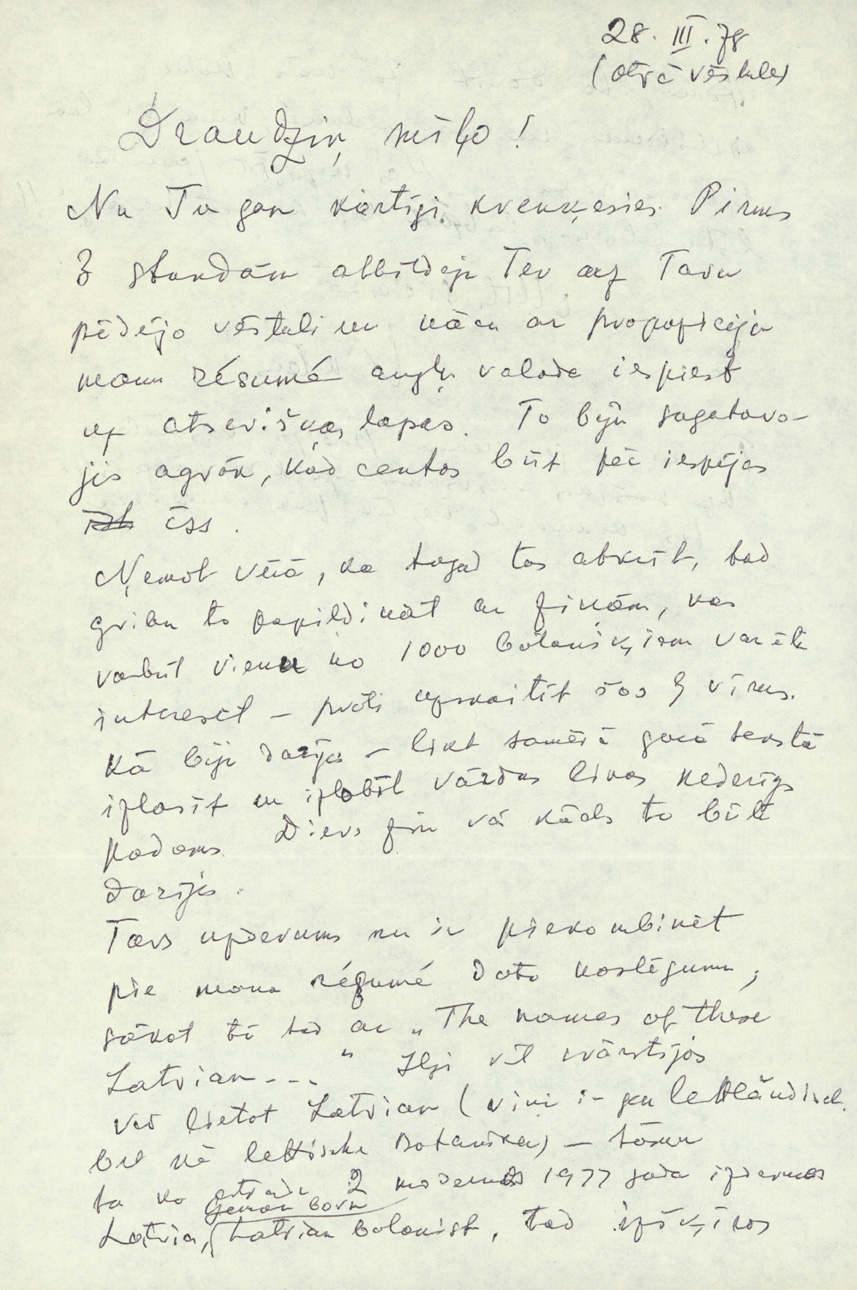 28. III. 78
(otrā vēstule)
Draudziņ mīļo!
Nu Tu gan kārtīgi kvenķesies. Pirms
3 stundām atbildēju Tev uz Tavu
pēdējo vēstuli un nācu ar propoziciju
manu résumé angļu valodā iespiest
uz atsevišķas lapas. To biju sagatavo-
jis agrāk, kad centos būt pēc iespējas
īss.
Ņemot vērā, ka tagad tas atkrīt, tad
gribu to papildināt ar ziņām, kas
varbūt vienu no 1000 botaniķiem varētu
interesēt – proti uzskaitīt šos 9 vīrus.
Kā biju darījis – likt samērā garā tekstā
izlasīt un izlobīt vārdus likās nederīgs
padoms. Dievs zin vā kāds to būtu
darījis.
Tavs uzdevums nu ir piekombinēt
pie mana résumé doto noslēgumu,
sākot tā tad ar „The names of these
Latvian..." Ilgi vēl svārstījos
vai lietot Latvian (viņi ir gan lettländisch
bet nē lettische Botaniker) – tāsun
ta ka atradu 2 modernos 1977 gada izdevumos
German born
Latvia, Latvian botanist, tad izšķīros